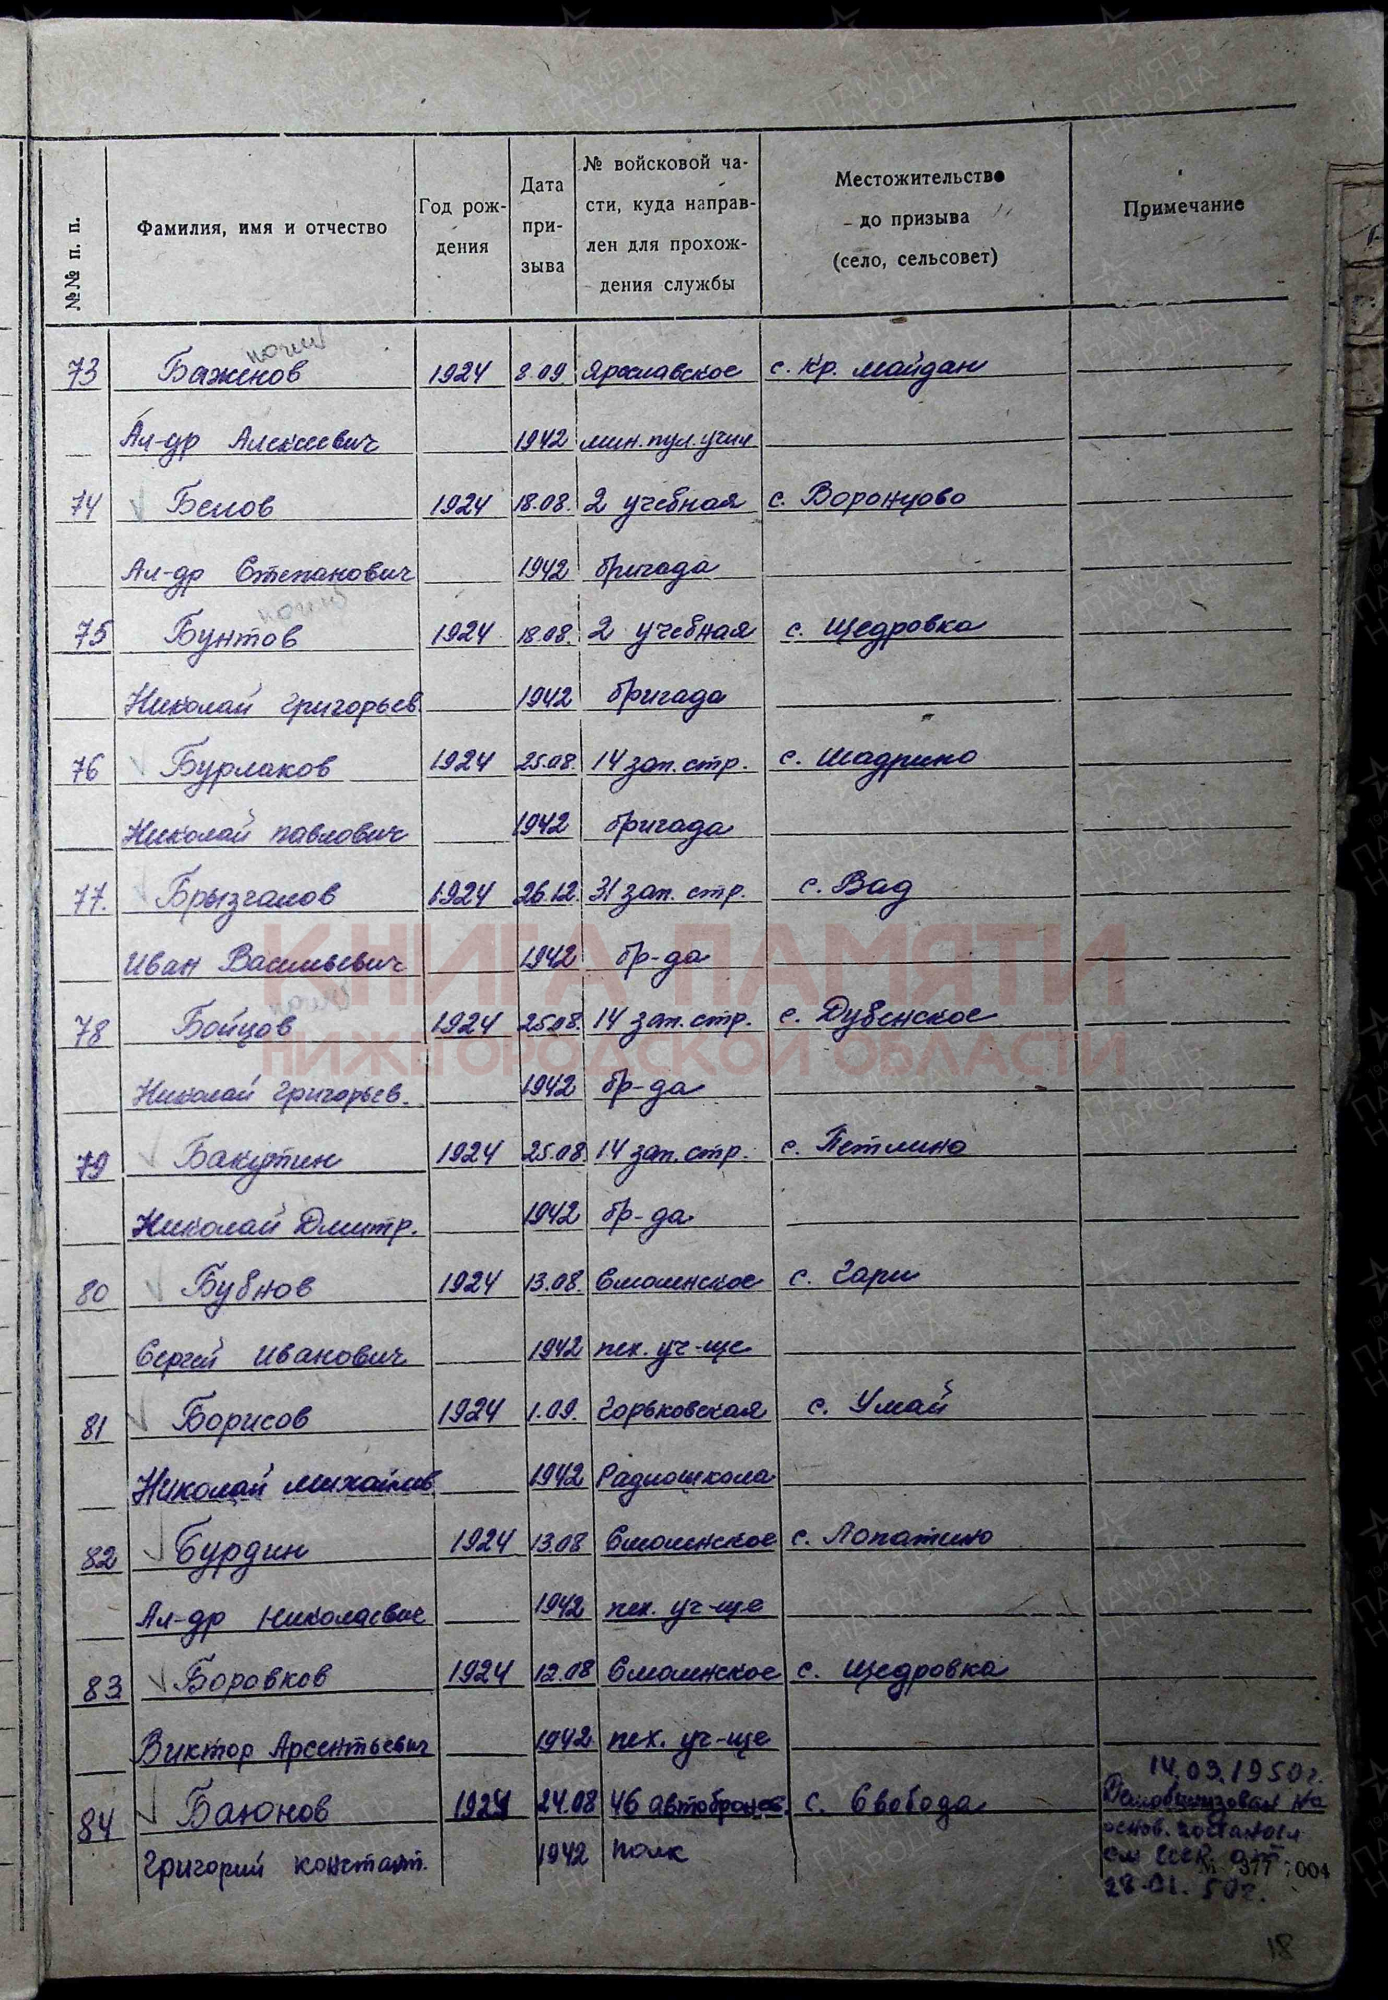 №№ п. п.
Фамилия, имя и отчество
Год рож-
дения
Дата
при-
зыва
№ войсковой ча-
сти, куда направ-
лен для прохож-
дения службы
Местожительство
до призыва
(село, сельсовет)
Примечание
73 Баженов 1924 8.09 Ярославское с. Кр. Майдан
Ал-др Алексеевич 1942 мин. пул. учил
74 Белов 1924 18.08. 2 учебная с. Воронцово
Ал-др Степанович 1942 бригада
75 Бунтов 1924 18.08. 2 учебная с. Щедровка
Николай Григорьев 1942 бригада
76 Бурлаков 1924 25.08. 14 зап. стр. с. Шадрино
Николай Павлович 1942 бригада
77. Брызгалов 1924 26.12. 31 зап. стр. с. Вад
Иван Васильевич 1942 бр-да
78 Бойцов 1924 25.08. 14 зап. стр. с. Дубенское
Николай Григорьев. 1942 бр-да
79 Бакутин 1924 25.08 14 зап. стр. с. Петлино
Николай Дмитр. 1942 бр-да
80 Бубнов 1924 13.08. Смоленское с. Гари
Сергей Иванович 1942 пех. уч-ще
81 Борисов 1924 1.09. Горьковская с. Умай
Николай Михайлов 1942 Радиошкола
82 Бурдин 1924 13.08 Смоленское с. Лопатино
Ал-др Николаевич 1942 пех. уч-ще
83 Боровков 1924 12.08 Смоленское с. Щедровка
Виктор Арсентьевич 1942 пех. уч-ще
14.03.1950г.
84 Баюнов 1924 24.08 46 автобронев. с. Свобода Демобилизован на
основ.
Григорий Констант. 1942 полк
см СССР от
377 004
28.01.50г.
18
КНИГА ПАМЯТИ
НИЖЕГОРОДСКОЙ ОБЛАСТИ
ПАМЯТЬ
НАРОДА